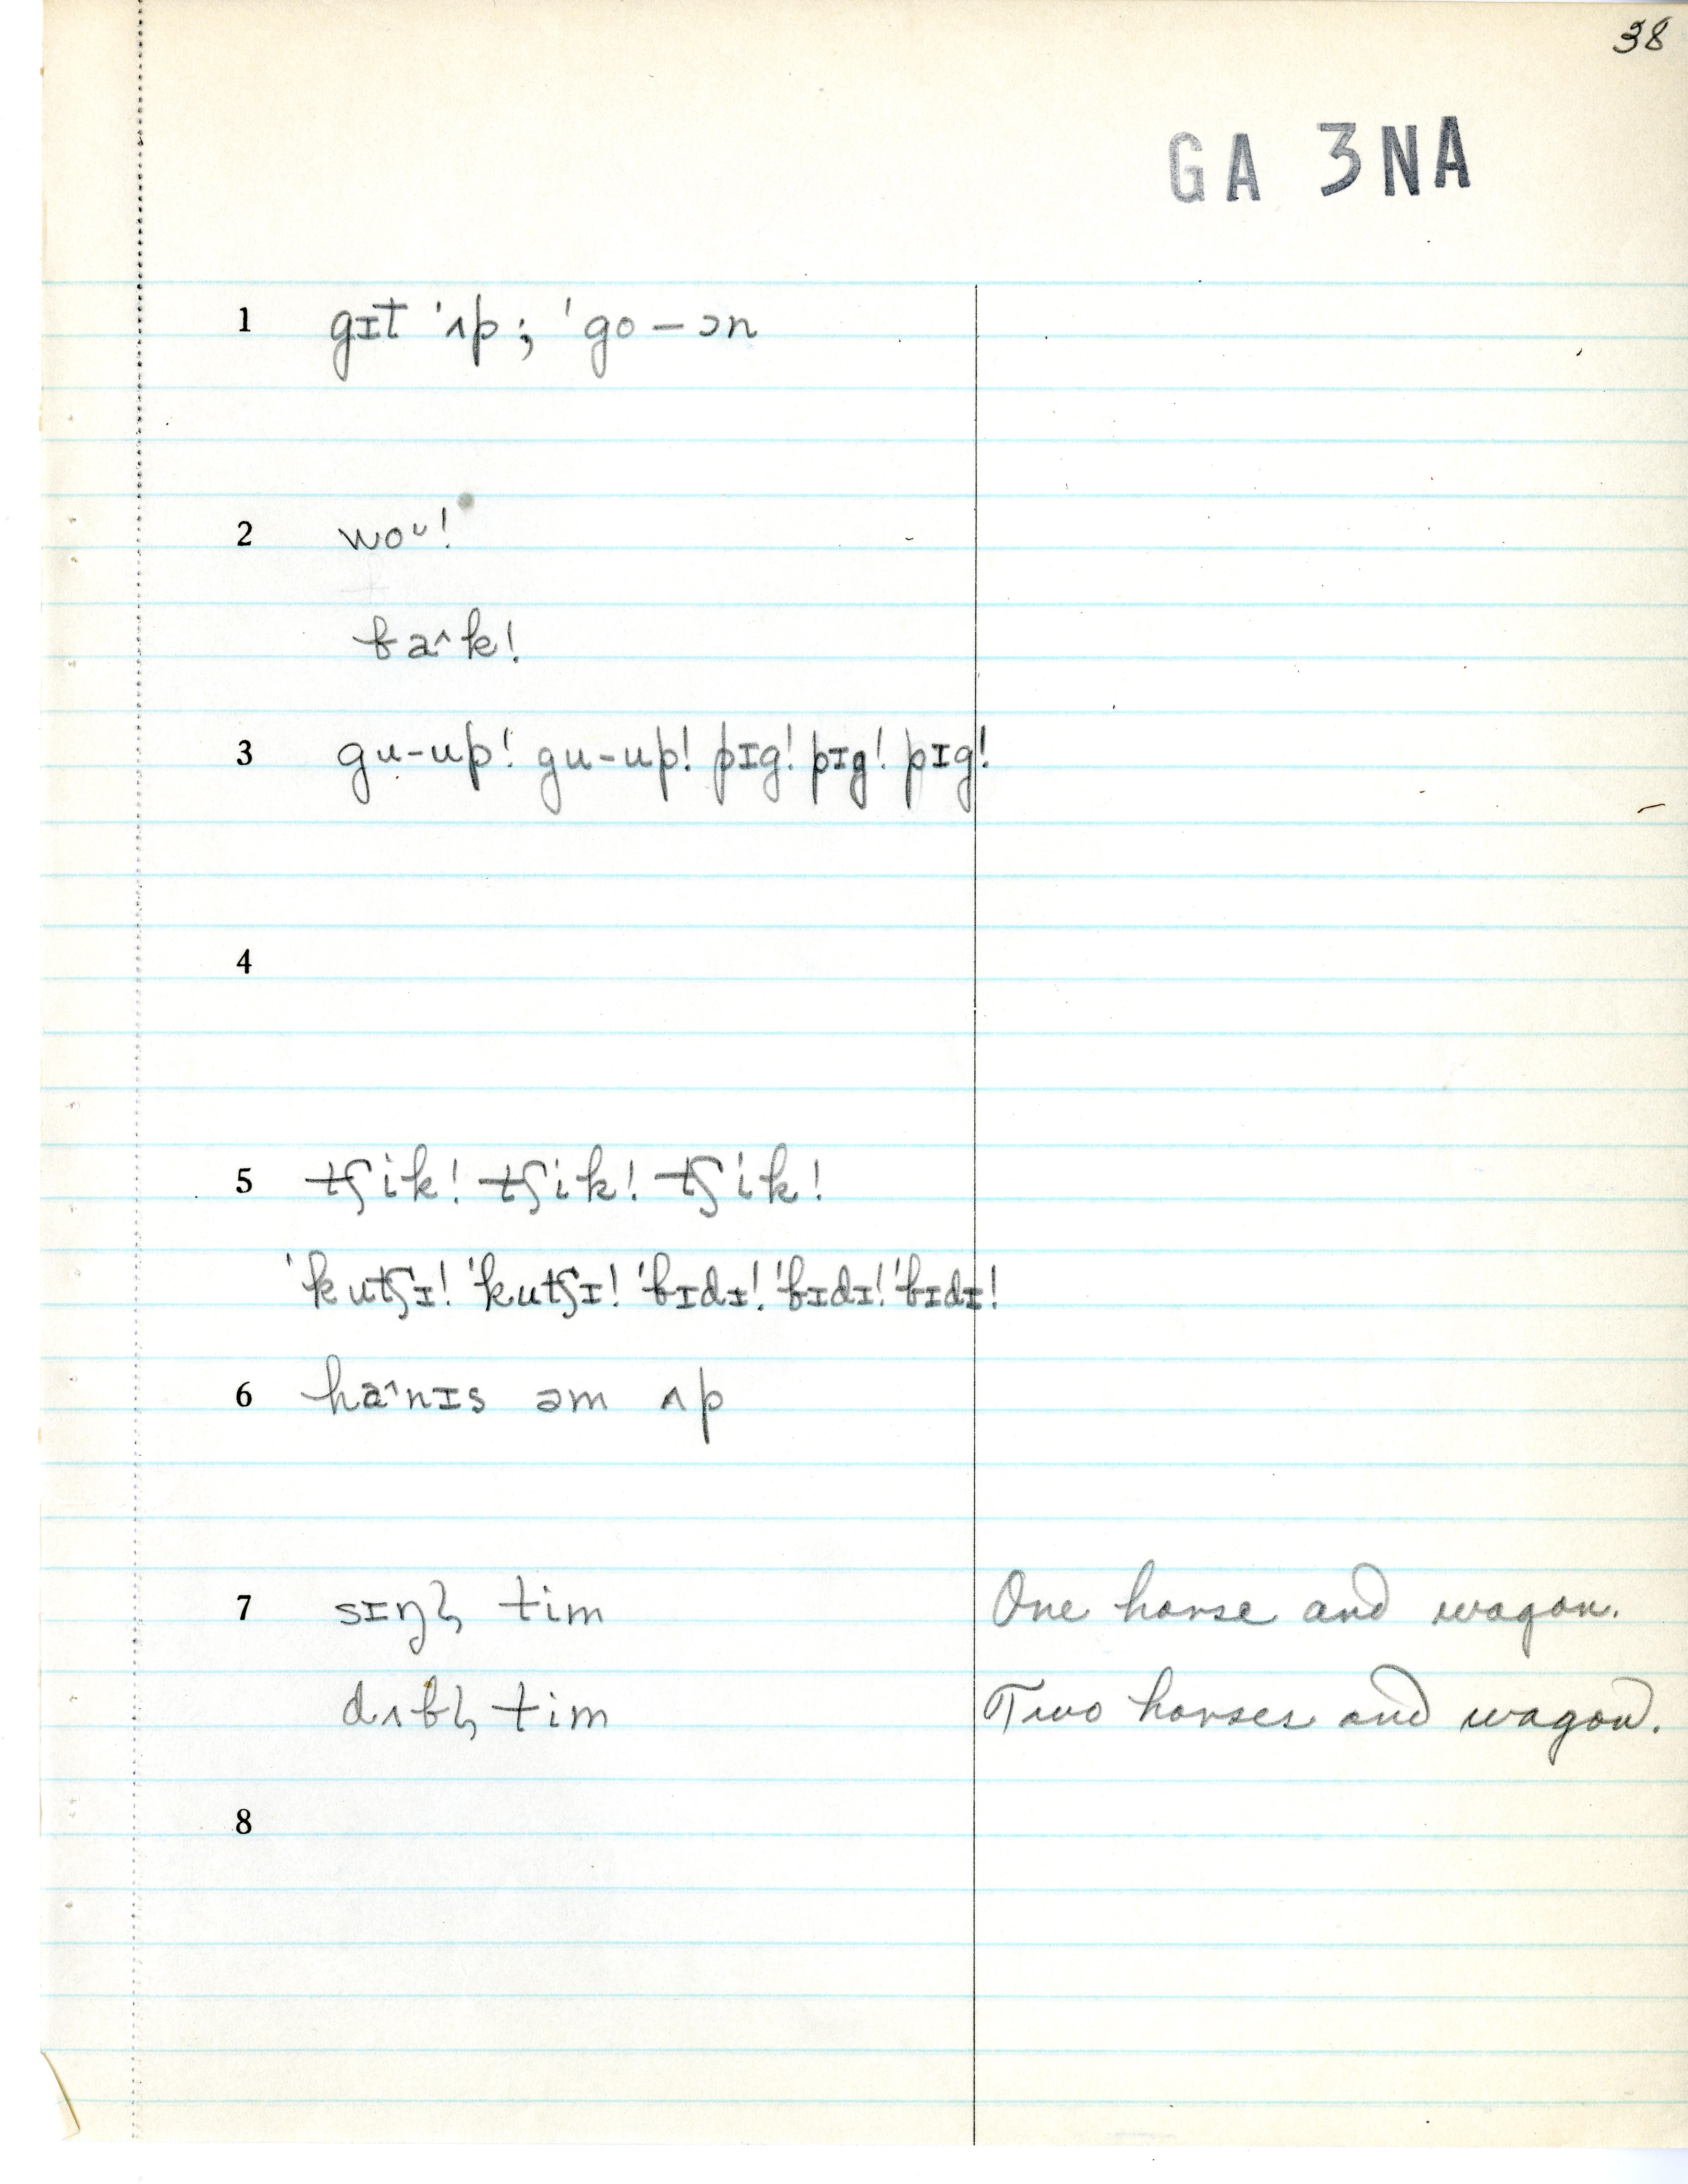 38
GA 3NA
1 gɪt ˈʌp; ˈgo – ɔn
2 woᵘ!
baˆk!
3 gu-up! gu-up! pɪg! pɪg! pɪg!
4
5 tʃik! tʃik! tʃik!
ˈkutʃɪ! ˈkutʃɪ! ˈbɪdɪ! ˈbɪdɪ! ˈbɪdɪ!
6 haˆnɪs əm ʌp
7 sɪŋl̩ tim One horse and wagon.
dʌbl̩ tim Two horses and wagon.
8